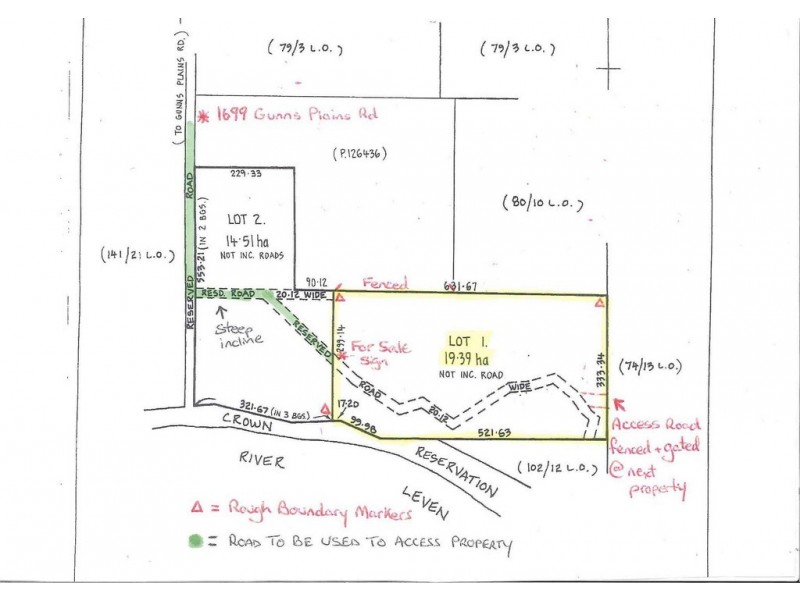 (79/3 L.O.)
(79/3 L.O.)
(TO GUNNS PLAINS RD.)
1699 Gunns Plains Rd
(P.126436)
229.33
ROAD
553.21 (IN 2 BGS.)
LOT 2.
14.51 ha
NOT INC. ROADS
(80/10 L.O.)
(141/21 L.O.)
90.12
Fenced
RESERVED
RESD. ROAD
20.12 WIDE
Steep
incline
RESERVED
299.14
For Sale
Sign
LOT 1.
19.39 ha
NOT INC. ROAD
333.34
(74/13 L.O.)
ROAD
20.12
WIDE
321.67 (IN 3 BGS.)
17.20
99.98
521.63
CROWN
RESERVATION
RIVER
LEVEN
(102/12 L.O.)
Access Road
fenced + gated
@ next
property
Δ = Rough Boundary Markers
= ROAD TO BE USED TO ACCESS PROPERTY